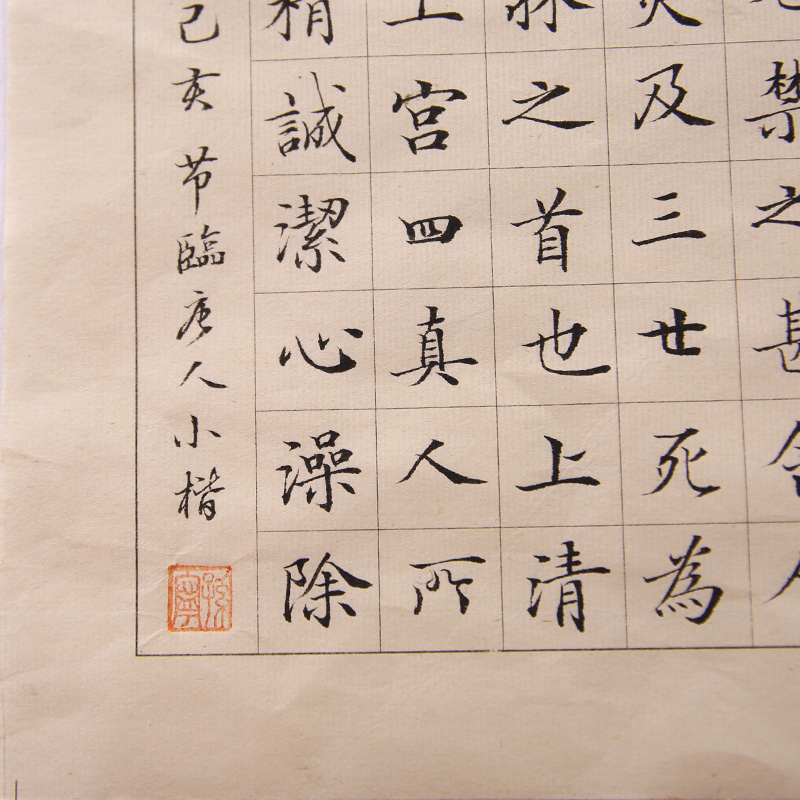 禁之甚令人
災及三世死為
牀之首也上清
上宮四真人所
精誠潔心澡除
己亥节臨唐人小楷